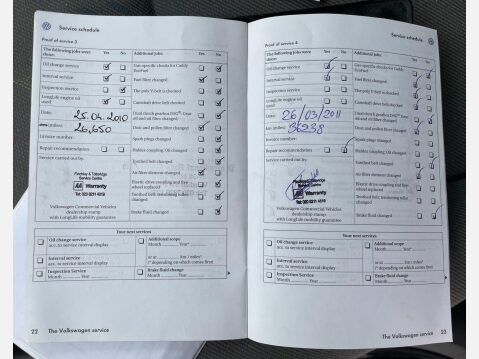 Service schedule
Proof of service 3
The following jobs were done: Yes No
Additional jobs: Yes No
Oil change service
Gas-specific checks for Caddy EcoFuel
Interval service
Fuel filter changed
Inspection service
The poly V-belt is checked
LongLife engine oil used
Camshaft drive belt checked
Date: 25.04.2010
Dual clutch gearbox DSG® Gear oil and oil filter changed
26,650
Dust and pollen filter changed
Spark plugs changed
Invoice number:
Haldex coupling, Oil changed
Repair recommendations
Toothed belt changed
Service carried out by:
Air filter element changed
Finchley & Totteridge
Service Centre
AA Warranty
Tel: 020 8211 4319
Elastic drive coupling and flexi-wheel replaced
Toothed belt tensioning roller changed
Volkswagen Commercial Vehicles
dealership stamp
with LongLife mobility guarantee
Brake fluid changed
Your next services
Oil change service
acc. to service interval display
Additional scope
Month Year*
Interval service
acc. to service interval display
or at km / miles*
(* depending on which comes first)
Inspection Service
Month Year
Brake fluid change
Month Year
22 The Volkswagen service
Service schedule
Proof of service 4
The following jobs were done: Yes No
Additional jobs: Yes No
Oil change service
Gas-specific checks for Caddy EcoFuel
Interval service
Fuel filter changed
Inspection service
The poly V-belt is checked
LongLife engine oil used
Camshaft drive belt checked
Date: 26/03/2011
Dual clutch gearbox DSG® Gear oil and oil filter changed
km/miles:
Dust and pollen filter changed
Invoice number:
Spark plugs changed
Repair recommendations
Haldex coupling, Oil changed
Service carried out by:
Toothed belt changed
Air filter element changed
AA Warranty
Tel: 020 8211 4319
Elastic drive coupling and flexi-wheel replaced
Toothed belt tensioning roller changed
Volkswagen Commercial Vehicles
dealership stamp
with LongLife mobility guarantee
Brake fluid changed
Your next services
Oil change service
acc. to service interval display
Additional scope
Month Year*
Interval service
acc. to service interval display
or at km / miles*
(* depending on which comes first)
Inspection Service
Month Year
Brake fluid change
Month Year
The Volkswagen service 23